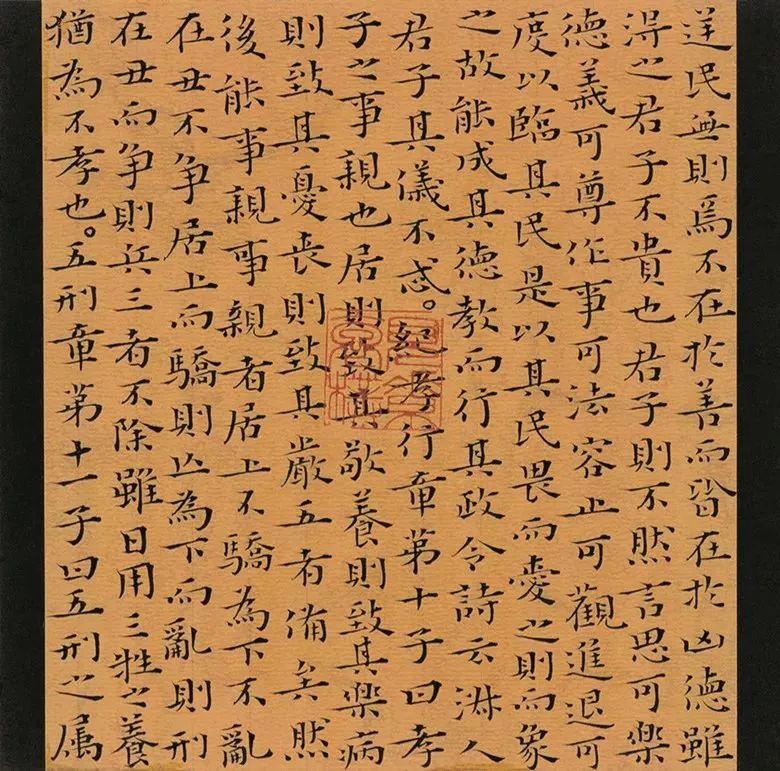 逆民無則焉不在於善而皆在於凶德雖
淂之君子不貴也君子則不然言思可樂
德義可尊作事可法容止可觀進退可
度以臨其民是以其民畏而愛之則而象
之故能成其德教而行其政令詩云淑人
君子其儀不忒。紀孝行章第十子曰孝
子之事親也居則致其敬養則致其樂病
則致其憂喪則致其嚴五者備矣然
後能事親事親者居上不驕為下不亂
在丑不争居上而驕則亡為下而亂則刑
在丑而争則兵三者不除雖日用三牲之養
猶為不孝也。五刑章第十一子曰五刑之属